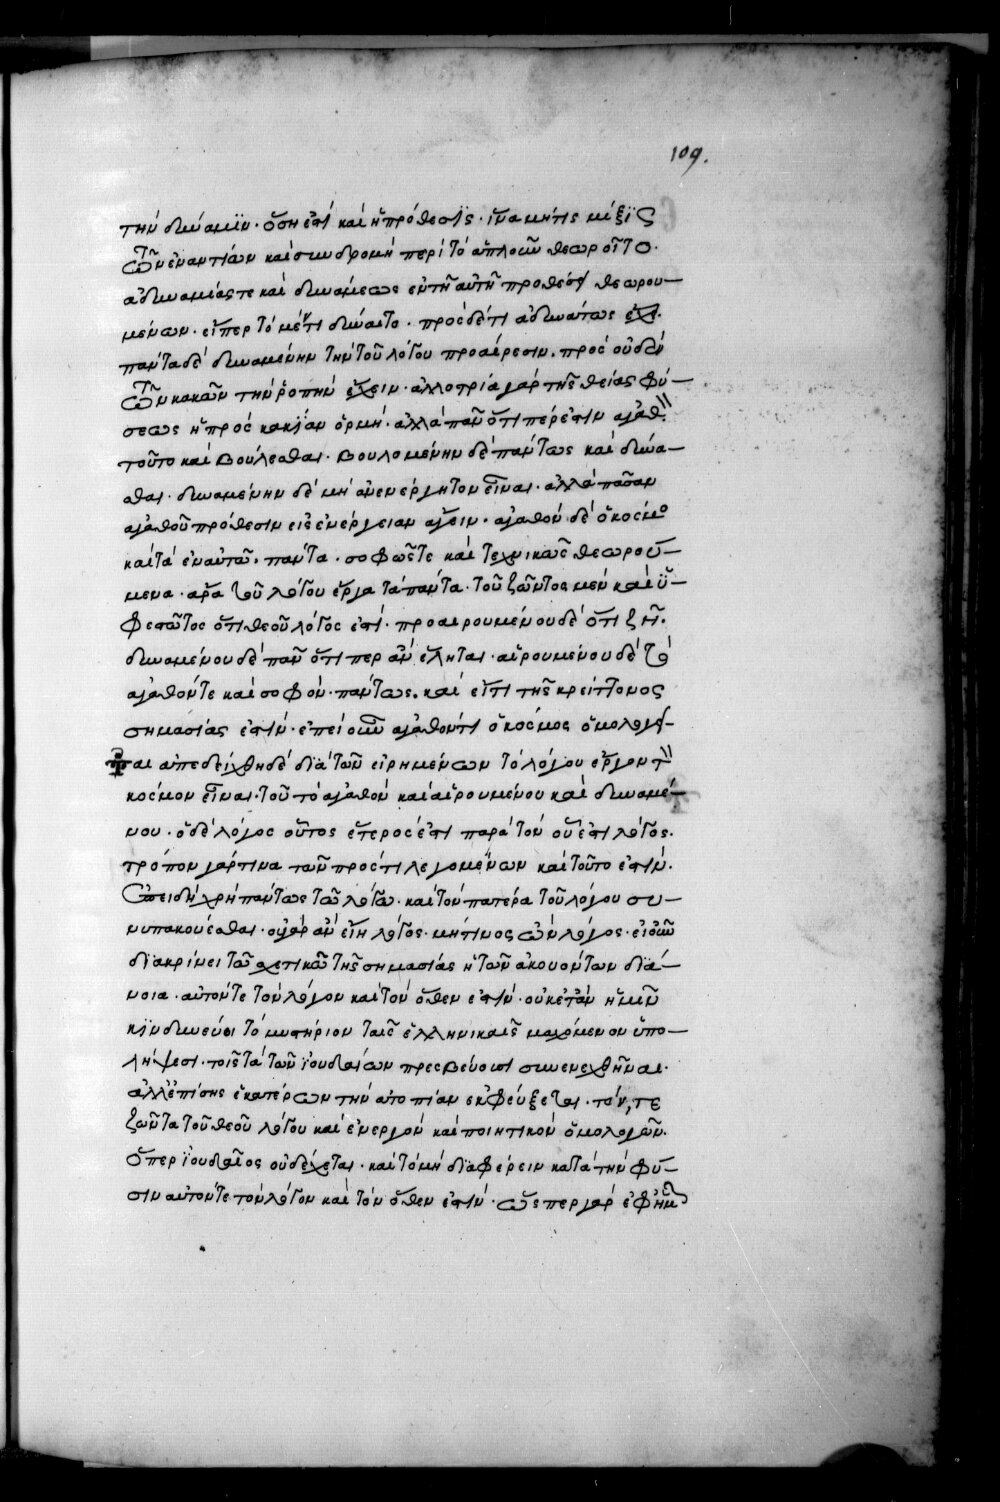 109.
τὴν δύναμϊν· ὅση ἐστὶ καὶ ἡ πρόθεσϊς· ἵνα μή τις μίξϊς
τῶν ἐναντίων καὶ συνδρομὴ περὶ τὸ ἁπλοῦν θεωροῖτο·
ἀδυναμίας τε καὶ δυνάμεως ἐν τῆ αὐτῆ προθέσει θεωρου–
μένων· εἴπερ τὸ μέν τι δύναιτο· πρὸς δέ τι ἀδυνάτως ἔχει·
πάντα δὲ δυναμένην τὴν τοῦ λόγου προαίρεσιν. πρὸς οὐδὲν
τῶν κακῶν τὴν ῥοπὴν ἔχειν· ἀλλοτρία γὰρ τῆς θείας φύ–
σεως ἡ πρὸς κακίαν ὁρμή· ἀλλὰ πᾶν ὅτι πέρ ἐστιν ἀγαθ
τοῦτο καὶ βούλεσθαι· βουλομένην δὲ πάντως καὶ δύνα–
σθαι· δυναμένην δὲ μὴ ἀνενέργητον εἶναι· ἀλλὰ πᾶσαν
ἀγαθοῦ πρόθεσιν εἰς ἐνέργειαν ἄγειν· ἀγαθὸν δὲ ὁ κόσμο
καὶ τὰ ἐν αὐτῶ· πάντα· σοφῶς τε καὶ τεχνικῶς θεωρού–
μενα· ἄρα τοῦ λόγου ἔργα τὰ πάντα· τοῦ ζῶντος μὲν καὶ ὑ–
φεστῶτος ὅτι θεοῦ λόγος ἐστί· προαιρουμένου δὲ ὅτι ζῆ·
δυναμένου δὲ πᾶν ὅτι περ ἂν ἕληται· αἱρουμένου δὲ τὸ
ἀγαθόν τε καὶ σοφὸν· πάντως. καὶ εἴ τι τῆς κρείττονος
σημασίας ἐστίν· ἐπεὶ οὖν ἀγαθόν τι ὁ κόσμος ὁμολογεῖ–
ται ἀπεδείχθη δὲ διὰ τῶν εἰρημένων τὸ λόγου ἔργον τ
κόσμον εἶναι· τοῦ τὸ ἀγαθὸν καὶ αἱρουμένου καὶ δυναμέ–
νου· ὁ δὲ λόγος οὗτος ἕτερός ἐστι παρὰ τὸν οὗ ἐστι λόγος.
τρόπον γάρ τινα τῶν πρός τι λεγομένων καὶ τοῦτο ἐστίν.
ἐπειδὴ χρὴ πάντως τῶ λόγω· καὶ τὸν πατέρα τοῦ λόγου συ–
νυπακούεσθαι· οὐ γὰρ ἂν εἴη λόγος· μή τινος ὢν λόγος· εἰ οὖν
διακρίνει τῶ σχετικῶ τῆς σημασίας ἡ τῶν ἀκουόντων διά–
νοια· αὐτόν τε τὸν λόγον καὶ τὸν ὅθεν ἐστίν· οὐκέτ' ἂν ἡμῖν
κϊνδυνεύσει τὸ μυστήριον ταῖς ἑλληνικαῖς μαχόμενον ὑπο–
λήψεσι· τοῖς τὰ τῶν ἰουδαίων πρεσβεύουσι συνενεχθῆναι.
ἀλλ' ἐπίσης ἑκατέρων τὴν ἀτοπίαν ἐκφεύξεται· τόν, τε
ζῶντα τοῦ θεοῦ λόγον καὶ ἐνεργὸν καὶ ποιητικὸν ὁμολογῶν.
ὅπερ ἰουδαῖος οὐ δέχεται· καὶ τὸ μὴ διαφέρειν κατὰ τὴν φύ–
σιν αὐτόν τε τὸν λόγον καὶ τὸν ὅθεν ἐστίν· ὥσπερ γὰρ ἐφ' ἡμῶν